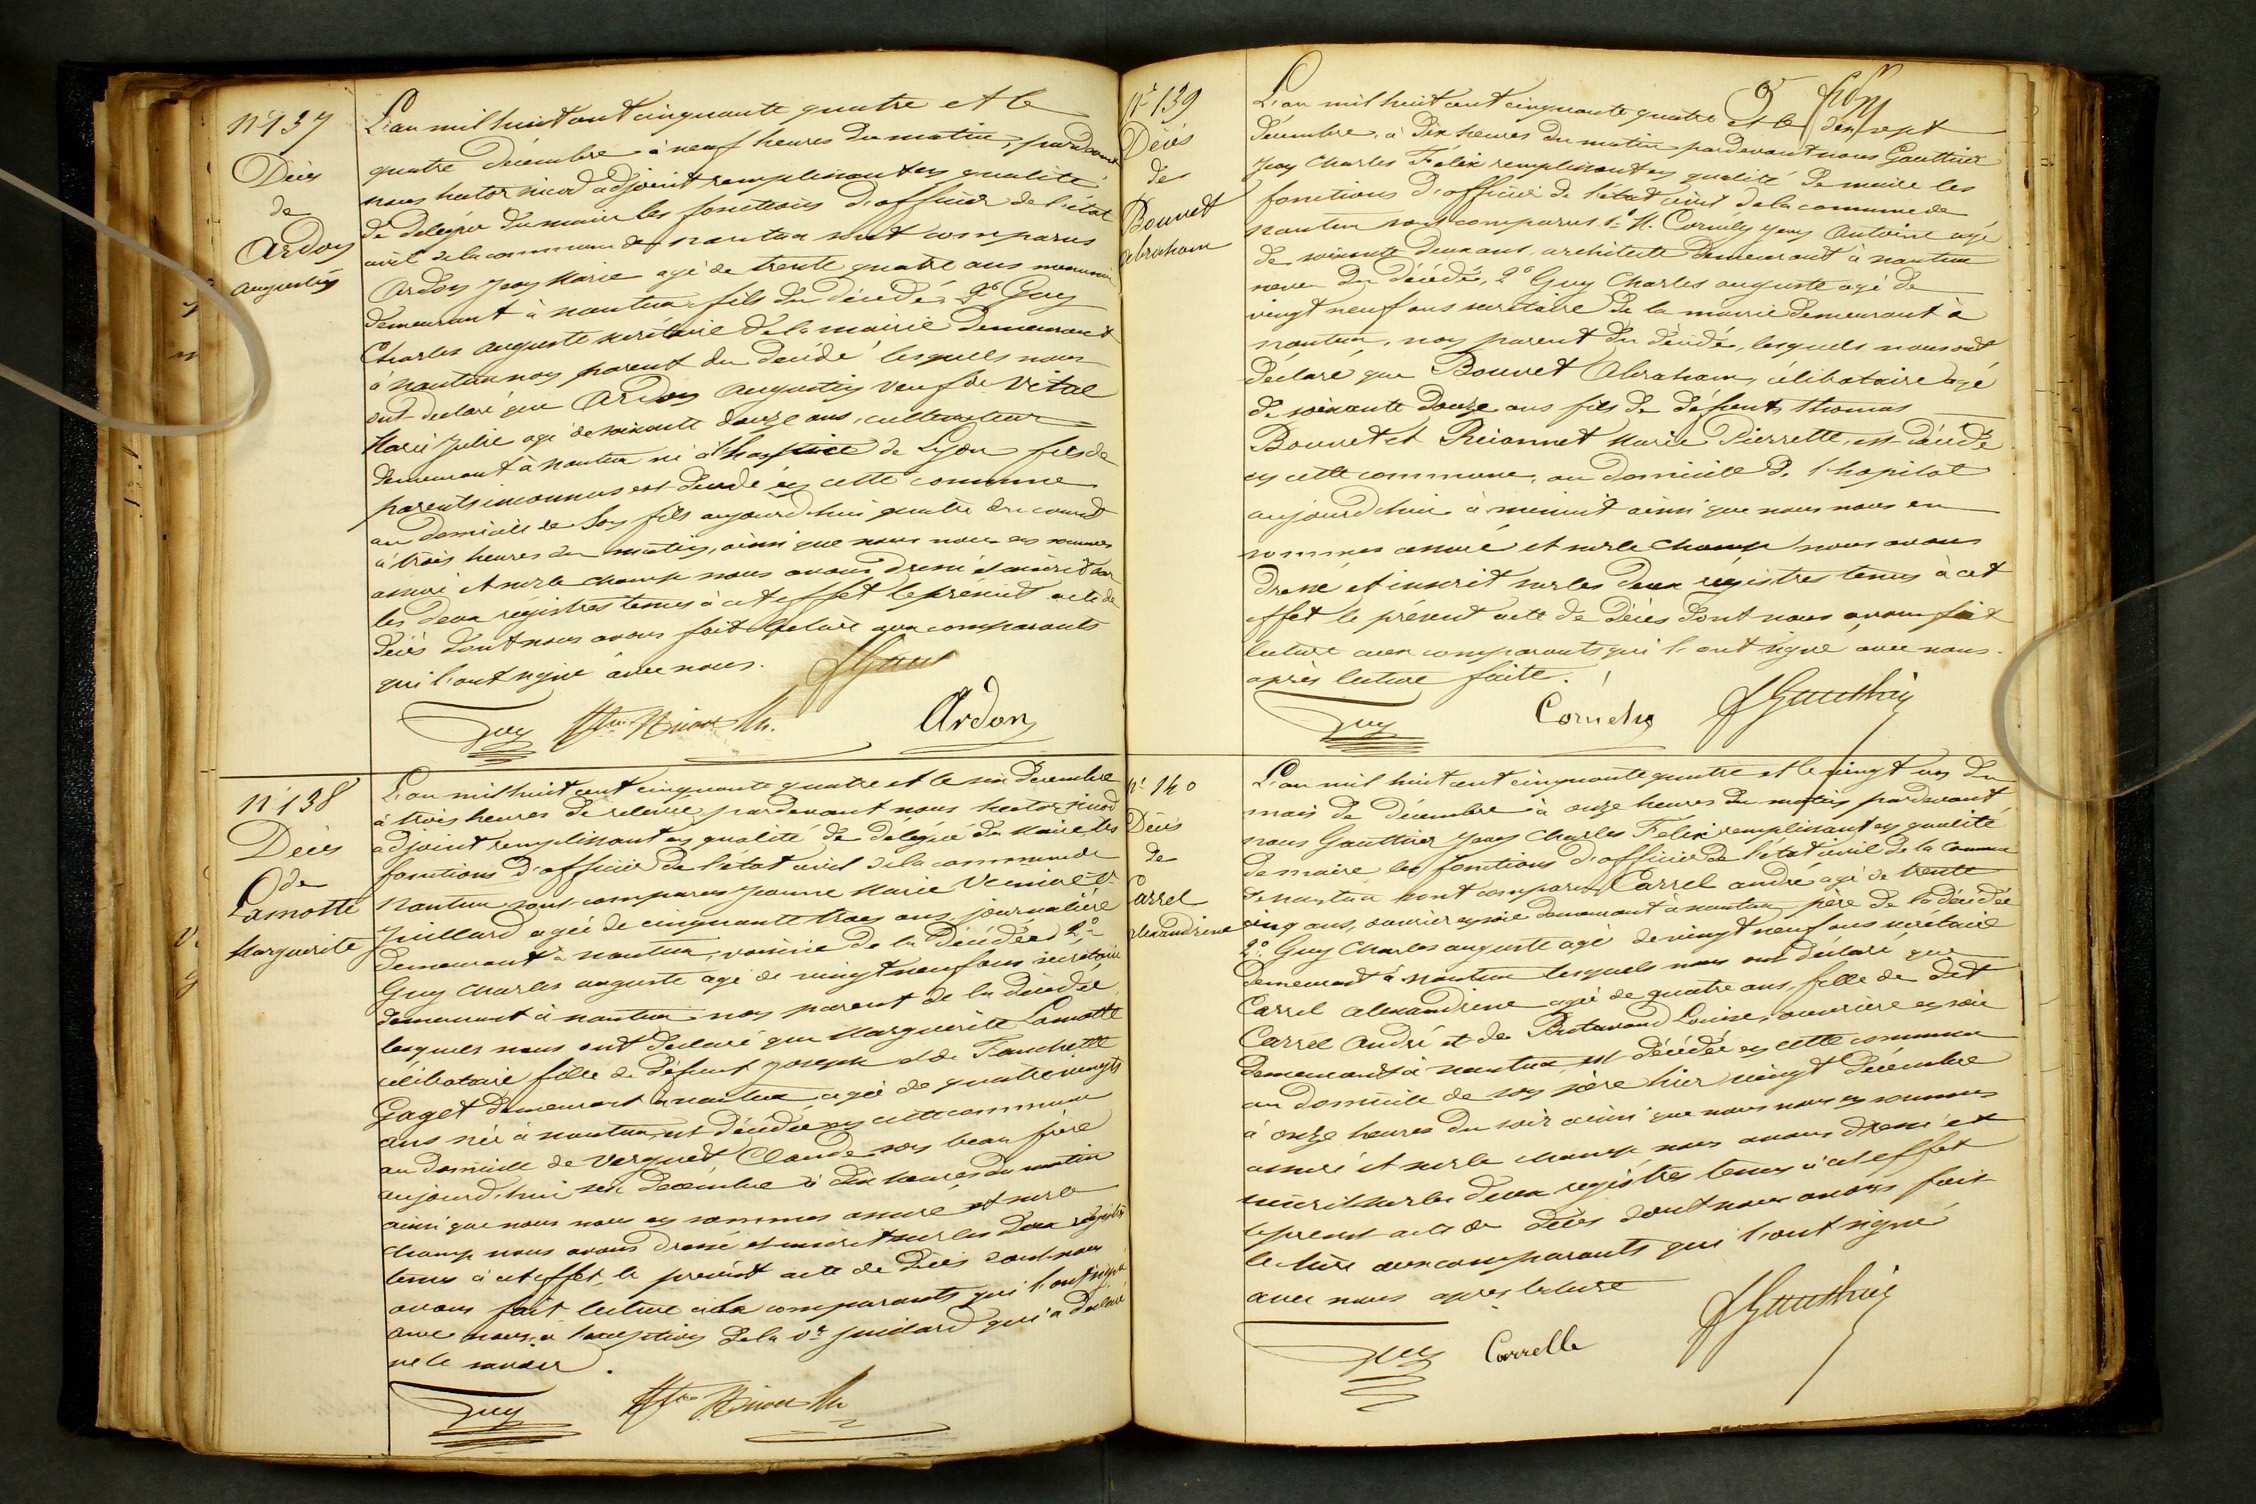 N° 137
Décès
de
Ardon
augustin
L'an mil huit cent cinquante quatre et le
quatre Décembre à neuf heures du matin, pardevant
nous hector nicod adjoint remplissant en qualité
de délégué du maire les fonctions d'officier de l'état
civil de la commune de nantua sont comparus
Ardon jean Marie agé de trente quatre ans menuisier
demeurant à nantua fils du décédé, 2° Guy
Charles auguste secrétaire de la mairie demeurant
à nantua non parent du décédé lesquels nous
ont declaré que Ardon augustin veuf de Vital
Marie Julie agé de soixante douze ans, cultivateur
demeurant à nantua né à l'hospice de Lyon fils de
parents inconnus est decédé en cette commune
au domicile de Son fils aujourd'hui quatre du courant
à trois heures du matin, ainsi que nous nous en sommes
assuré et sur le champ nous avons dressé et inscrit sur
les deux registres tenus à cet effet le présent acte de
décès dont nous avons fait lecture aux comparants
qui l'ont signé avec nous.
Guy Ardon
N° 138
Décès
de
Lamotte
Marguerite
L'an mil huit cent cinquante quatre et le six decembre
à trois heures de relevée, pardevant nous hector nicod
adjoint remplissant en qualité de délégué du Maire les
fonctions d'officier de l'état civil de la commune de
Nantua sont comparus Jeanne Marie Vve
Juillard agée de cinquante trois ans, journalière
demeurant à nantua, voisine de la Décédée, 2°
Guy Charles auguste agé de vingt neuf ans secrétaire
demeurant à nantua non parent de la décédée
lesquels nous ont declaré que Marguerite Lamotte
célibataire fille de défunt joseph et de Fanchette
Goget demeurant à nantua agée de quatrevingts
ans née à nantua, est décédée en cette commune
au domicile de Verguet Claude son beau frère
aujourd'hui six Décembre à dix heures du matin
ainsi que nous nous en sommes assuré et sur le
champ nous avons dressé et inscrit sur les deux registres
tenus à cet effet, le présent acte de décès dont nous
avons fait lecture aux comparants qui l'ont signé
avec nous, à l'exception de la Ve Juilard qui a declaré
ne le savoir.
Guy
N° 139
Décès
de
Bouvet
abraham
L'an mil huit cent cinquante quatre et le dix sept
décembre, à dix heures du matin pardevant nous Gauthier
jean Charles Félix remplissant en qualité de maire les
fonctions d'officier de l'état civil de la commune de
nantua sont comparus 1° M. Cornély jean Antoine agé
de soixante deux ans, architecte demeurant à nantua
neveu du décédé, 2° Guy Charles auguste agé de
vingt neuf ans secretaire de la mairie demeurant à
nantua, non parent du décédé, lesquels nous ont
déclaré que Bouvet Abraham, célibataire agé
de soixante douze ans fils de défunts thomas
Bouvet et Marie Pierrette, est décédé
en cette commune, au domicile de l'hopital
aujourd'hui à minuit ainsi que nous nous en
sommes assuré et sur le champ nous avons
dressé et inscrit sur les deux registres tenus à cet
effet le présent acte de décès dont nous avons fait
lecture aux comparants qui l'ont signé avec nous
après lecture faite.
Guy Cornely JGauthier
N° 140
Décès
de
Carrel
alexandrine
L'an mil huit cent cinquante quatre et le vingt un du
mois de décembre à onze heures du matin pardevant
nous Gauthier jean Charles Félix remplissant en qualité
de maire les fonctions d'officier de l'état civil de la commune
de nantua sont comparus Carrel andré agé de trente
cinq ans, ouvrier en soie demeurant à nantua père de la décédée
2° Guy Charles auguste agé de vingt neuf ans secrétaire
demeurant à nantua lesquels nous ont déclaré que
Carrel alexandrine agée de quatre ans, fille de dit
Carrel André et de Louise, ouvrière en soie
demeurant à nantua est décédée en cette commune
au domicile de son père hier vingt décembre
à onze heures du soir ainsi que nous nous en sommes
assuré et sur le champ nous avons dressé et
inscrit sur les deux registres tenus à cet effet
le présent acte de décès dont nous avons fait
lecture aux comparants qui l'ont signé
avec nous après lecture
Guy Carrelle JGauthier